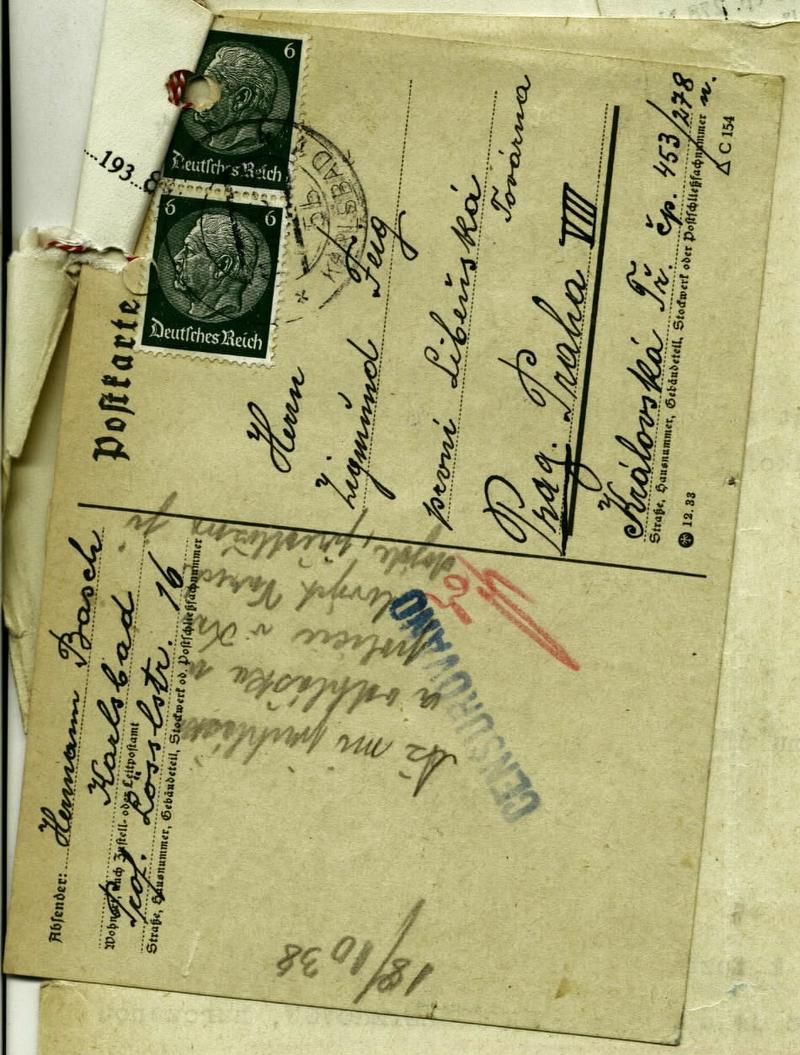 193 8
6
Deutsches Reich
6
Deutsches Reich
KARLSBAD
Postkarte
Herrn
Zigmund Feig
první Libeňská Továrna
Prag. Praha VIII
Královská Tř. čp. 453/278
n.
Straße, Hausnummer, Gebäudeteil, Stockwerk oder Postschließfachnummer
12. 33
C 154
Absender: Hermann Basch
Karlsbad
Wohnort, auch Zustell- oder Leitpostamt
Prof. Lösslstr. 16
Straße, Hausnummer, Gebäudeteil, Stockwerk od. Postschließfachnummer
CENSUROVÁNO
Až mi
a odhláška
policie v
18/10 38